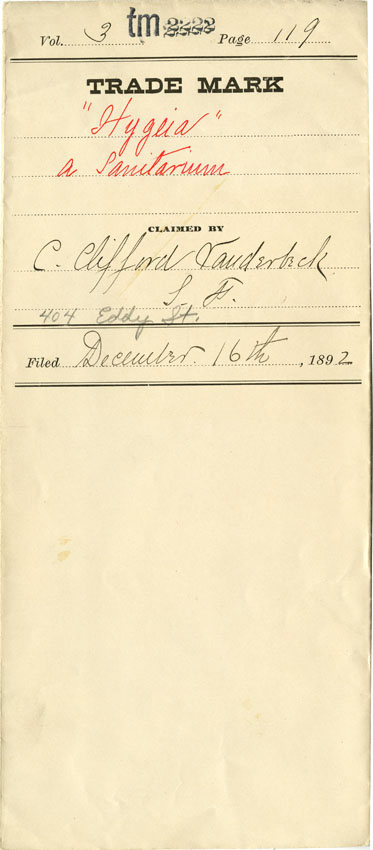 Vol. 3 tm 2222 Page 119
TRADE MARK
"Hygeia"
a Sanitarium
CLAIMED BY
C. Clifford Vanderbeck
S. F.
404 Eddy St.
Filed December. 16th, 1892